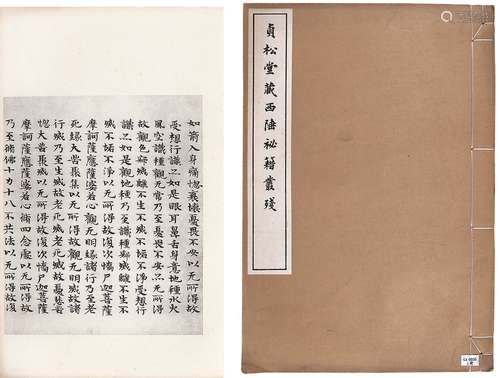 如箭入身痛惱衰壞憂畏不安以无所得故
受想行識之如是眼耳鼻舌身意地種水火
風空識種觀无常乃至憂畏不安之无所得
故觀色寂滅離不生不滅不垢不淨受想行
識之如是觀地種乃至識種寂滅離不生不
滅不垢不淨以无所得故復次憍尸迦菩薩
摩訶薩應薩婆若心觀无明緣諸行乃至老
死緣大苦聚集以无所得故觀无明滅故諸
行滅乃至生滅故老死滅老死滅故憂悲苦
惱大苦聚滅以无所得故復次憍尸迦菩薩
摩訶薩應薩婆若心脩四念處以无所得故
乃至脩佛十力十八不共法以无所得故復
貞松堂藏西陲祕籍叢殘